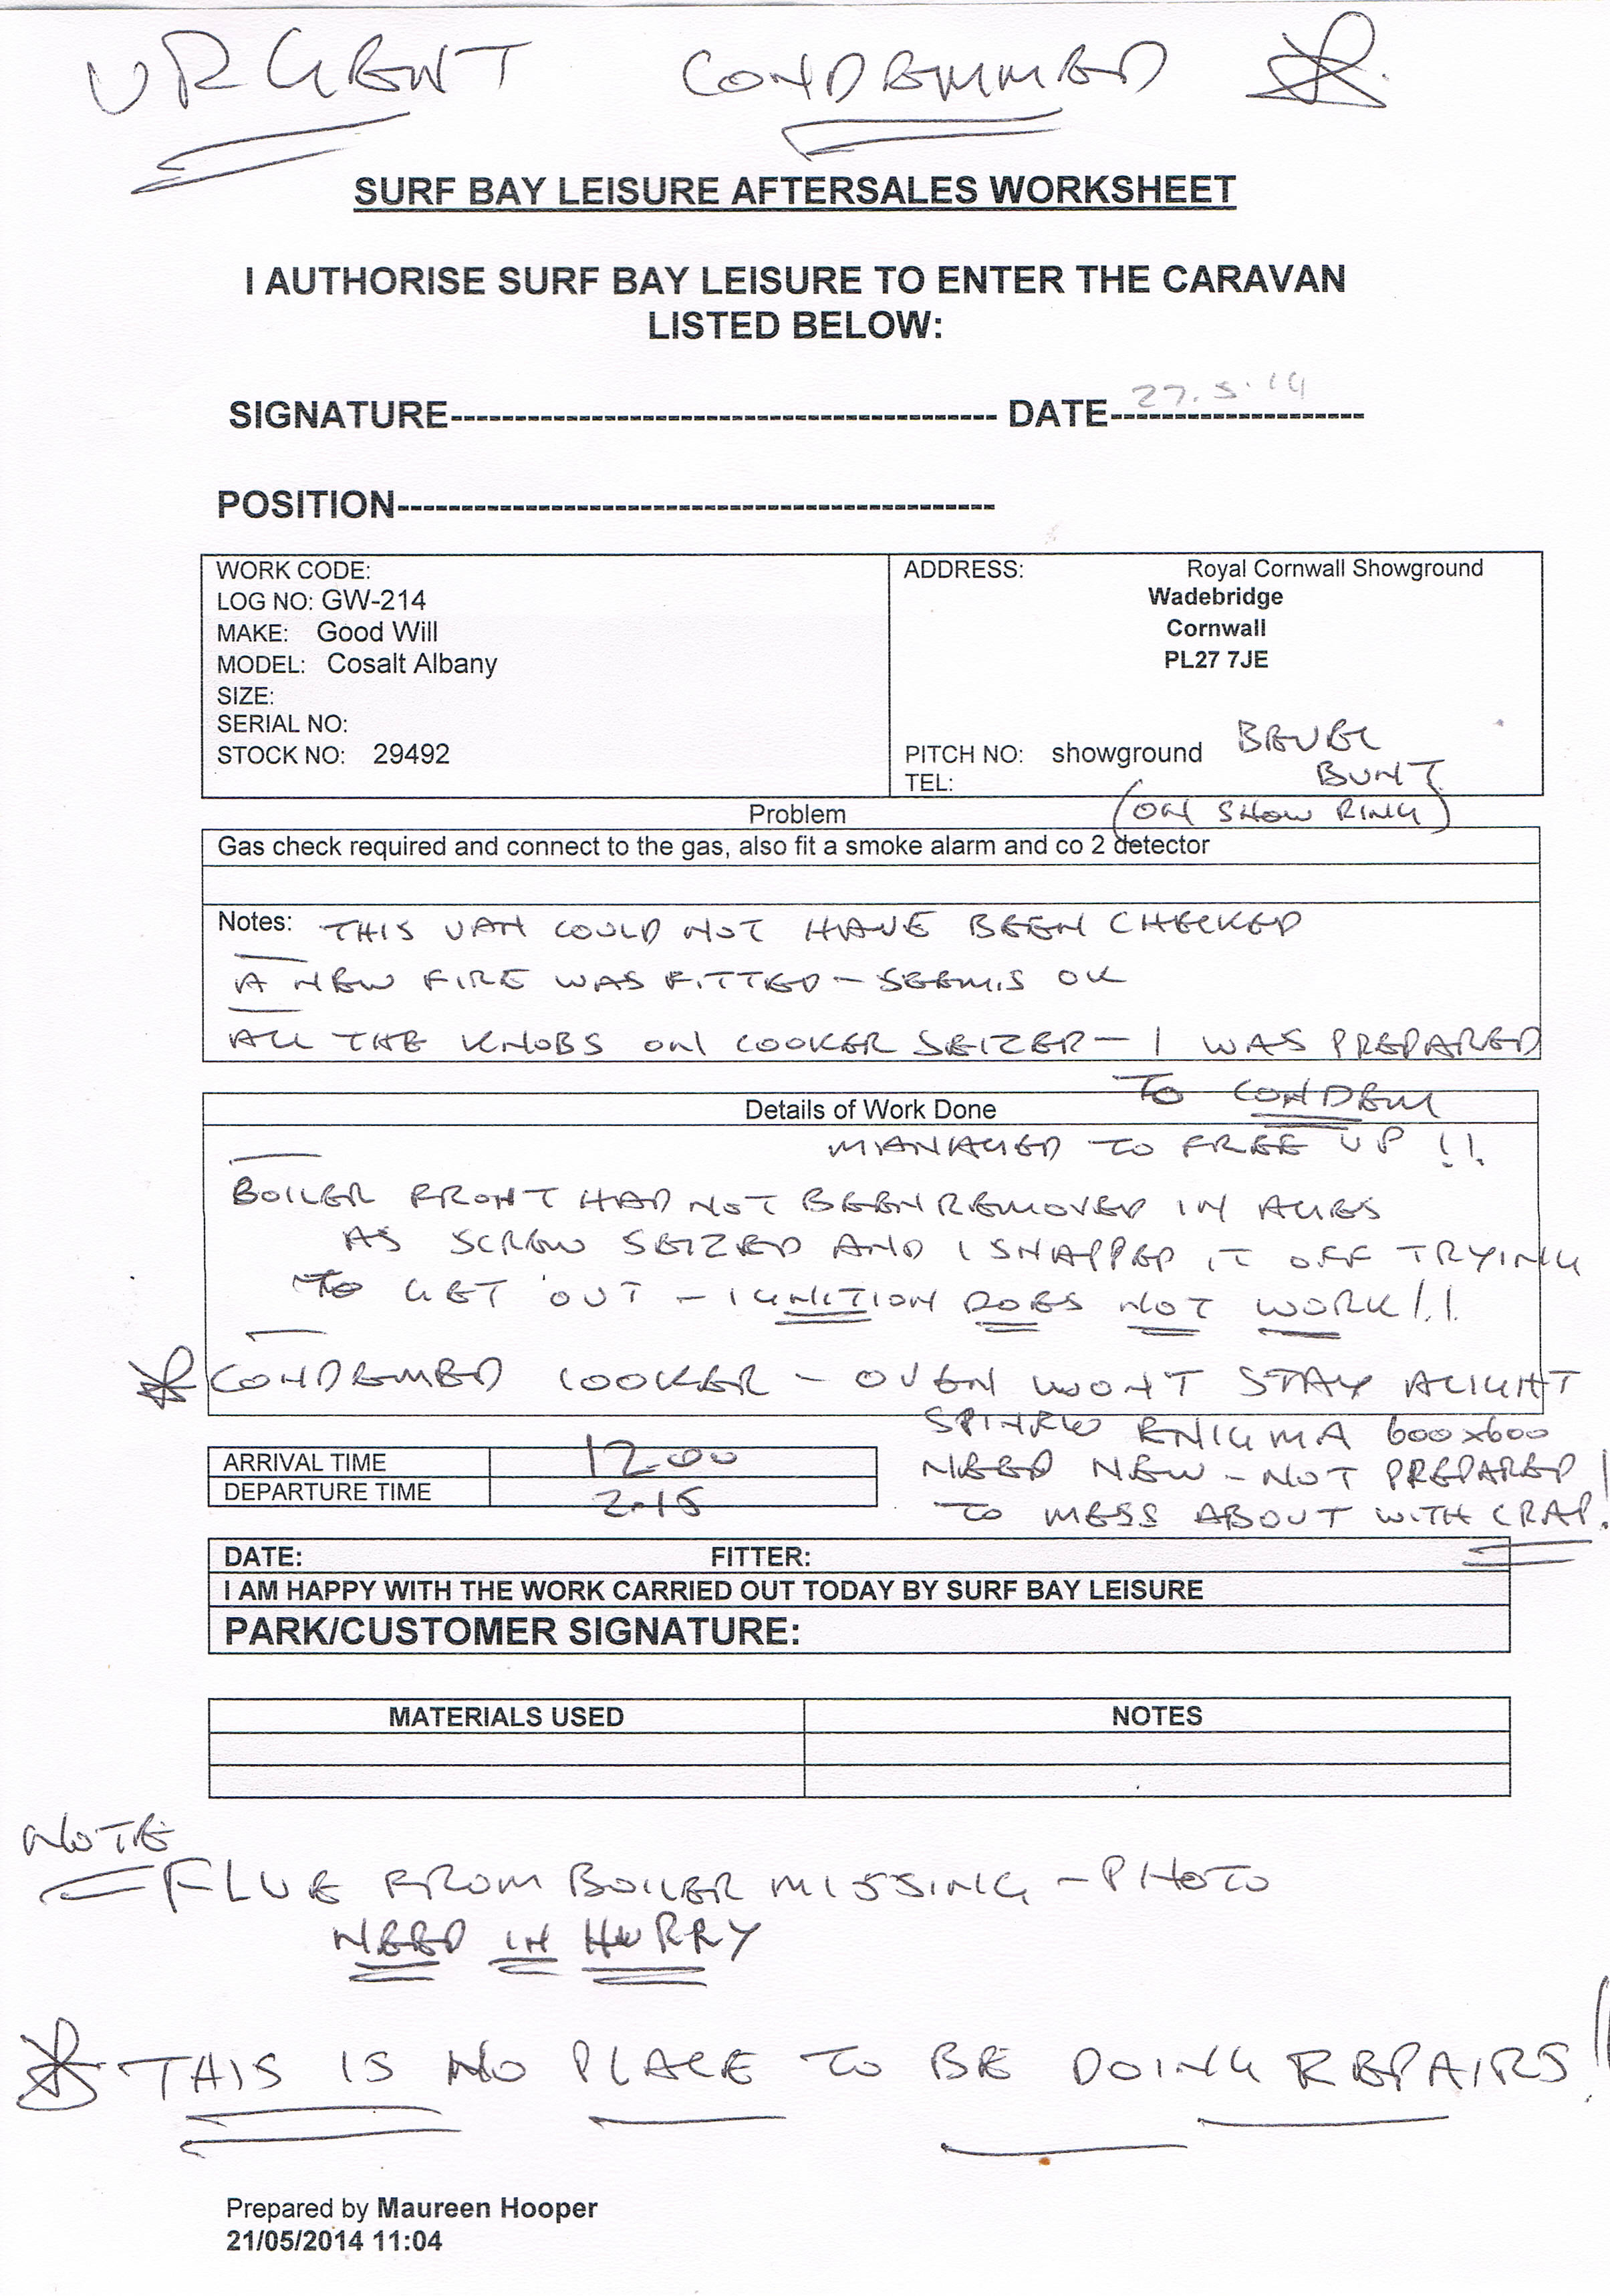 URGENT CONDEMMED
SURF BAY LEISURE AFTERSALES WORKSHEET
I AUTHORISE SURF BAY LEISURE TO ENTER THE CARAVAN
LISTED BELOW:
SIGNATURE------------------------------------------- DATE-------------------- 27.5.14
POSITION-----------------------------------------------
WORK CODE:
LOG NO: GW-214
MAKE: Good Will
MODEL: Cosalt Albany
SIZE:
SERIAL NO:
STOCK NO: 29492
ADDRESS: Royal Cornwall Showground
Wadebridge
Cornwall
PL27 7JE
PITCH NO: showground
BUNT
TEL:
(ON SHOW RING)
Problem
Gas check required and connect to the gas, also fit a smoke alarm and co 2 detector
Notes: THIS VAN COULD NOT HAVE BEEN CHECKED
A NEW FIRE WAS FITTED - SEEMS OK
ALL THE KNOBS ON COOKER SEIZER - I WAS PREPARED
TO CONDEM
Details of Work Done
MANAGED TO FREE UP !!
BOILER FRONT HAD NOT BEEN REMOVED IN AGES
AS SCREW SEIZED AND I SNAPPED IT OFF TRYING
TO GET OUT - IGNITION DOES NOT WORK!!
CONDEMED COOKER - OVEN WON'T STAY ALIGHT
ENIGMA 600x600
NEED NEW - NOT PREPARED
TO MESS ABOUT WITH CRAP!
ARRIVAL TIME 12.00
DEPARTURE TIME 2.15
DATE: FITTER:
I AM HAPPY WITH THE WORK CARRIED OUT TODAY BY SURF BAY LEISURE
PARK/CUSTOMER SIGNATURE:
MATERIALS USED NOTES
NOTE
FLUE FROM BOILER MISSING - PHOTO
NEED IN HURRY
THIS IS NO PLACE TO BE DOING REPAIRS!!
Prepared by Maureen Hooper
21/05/2014 11:04